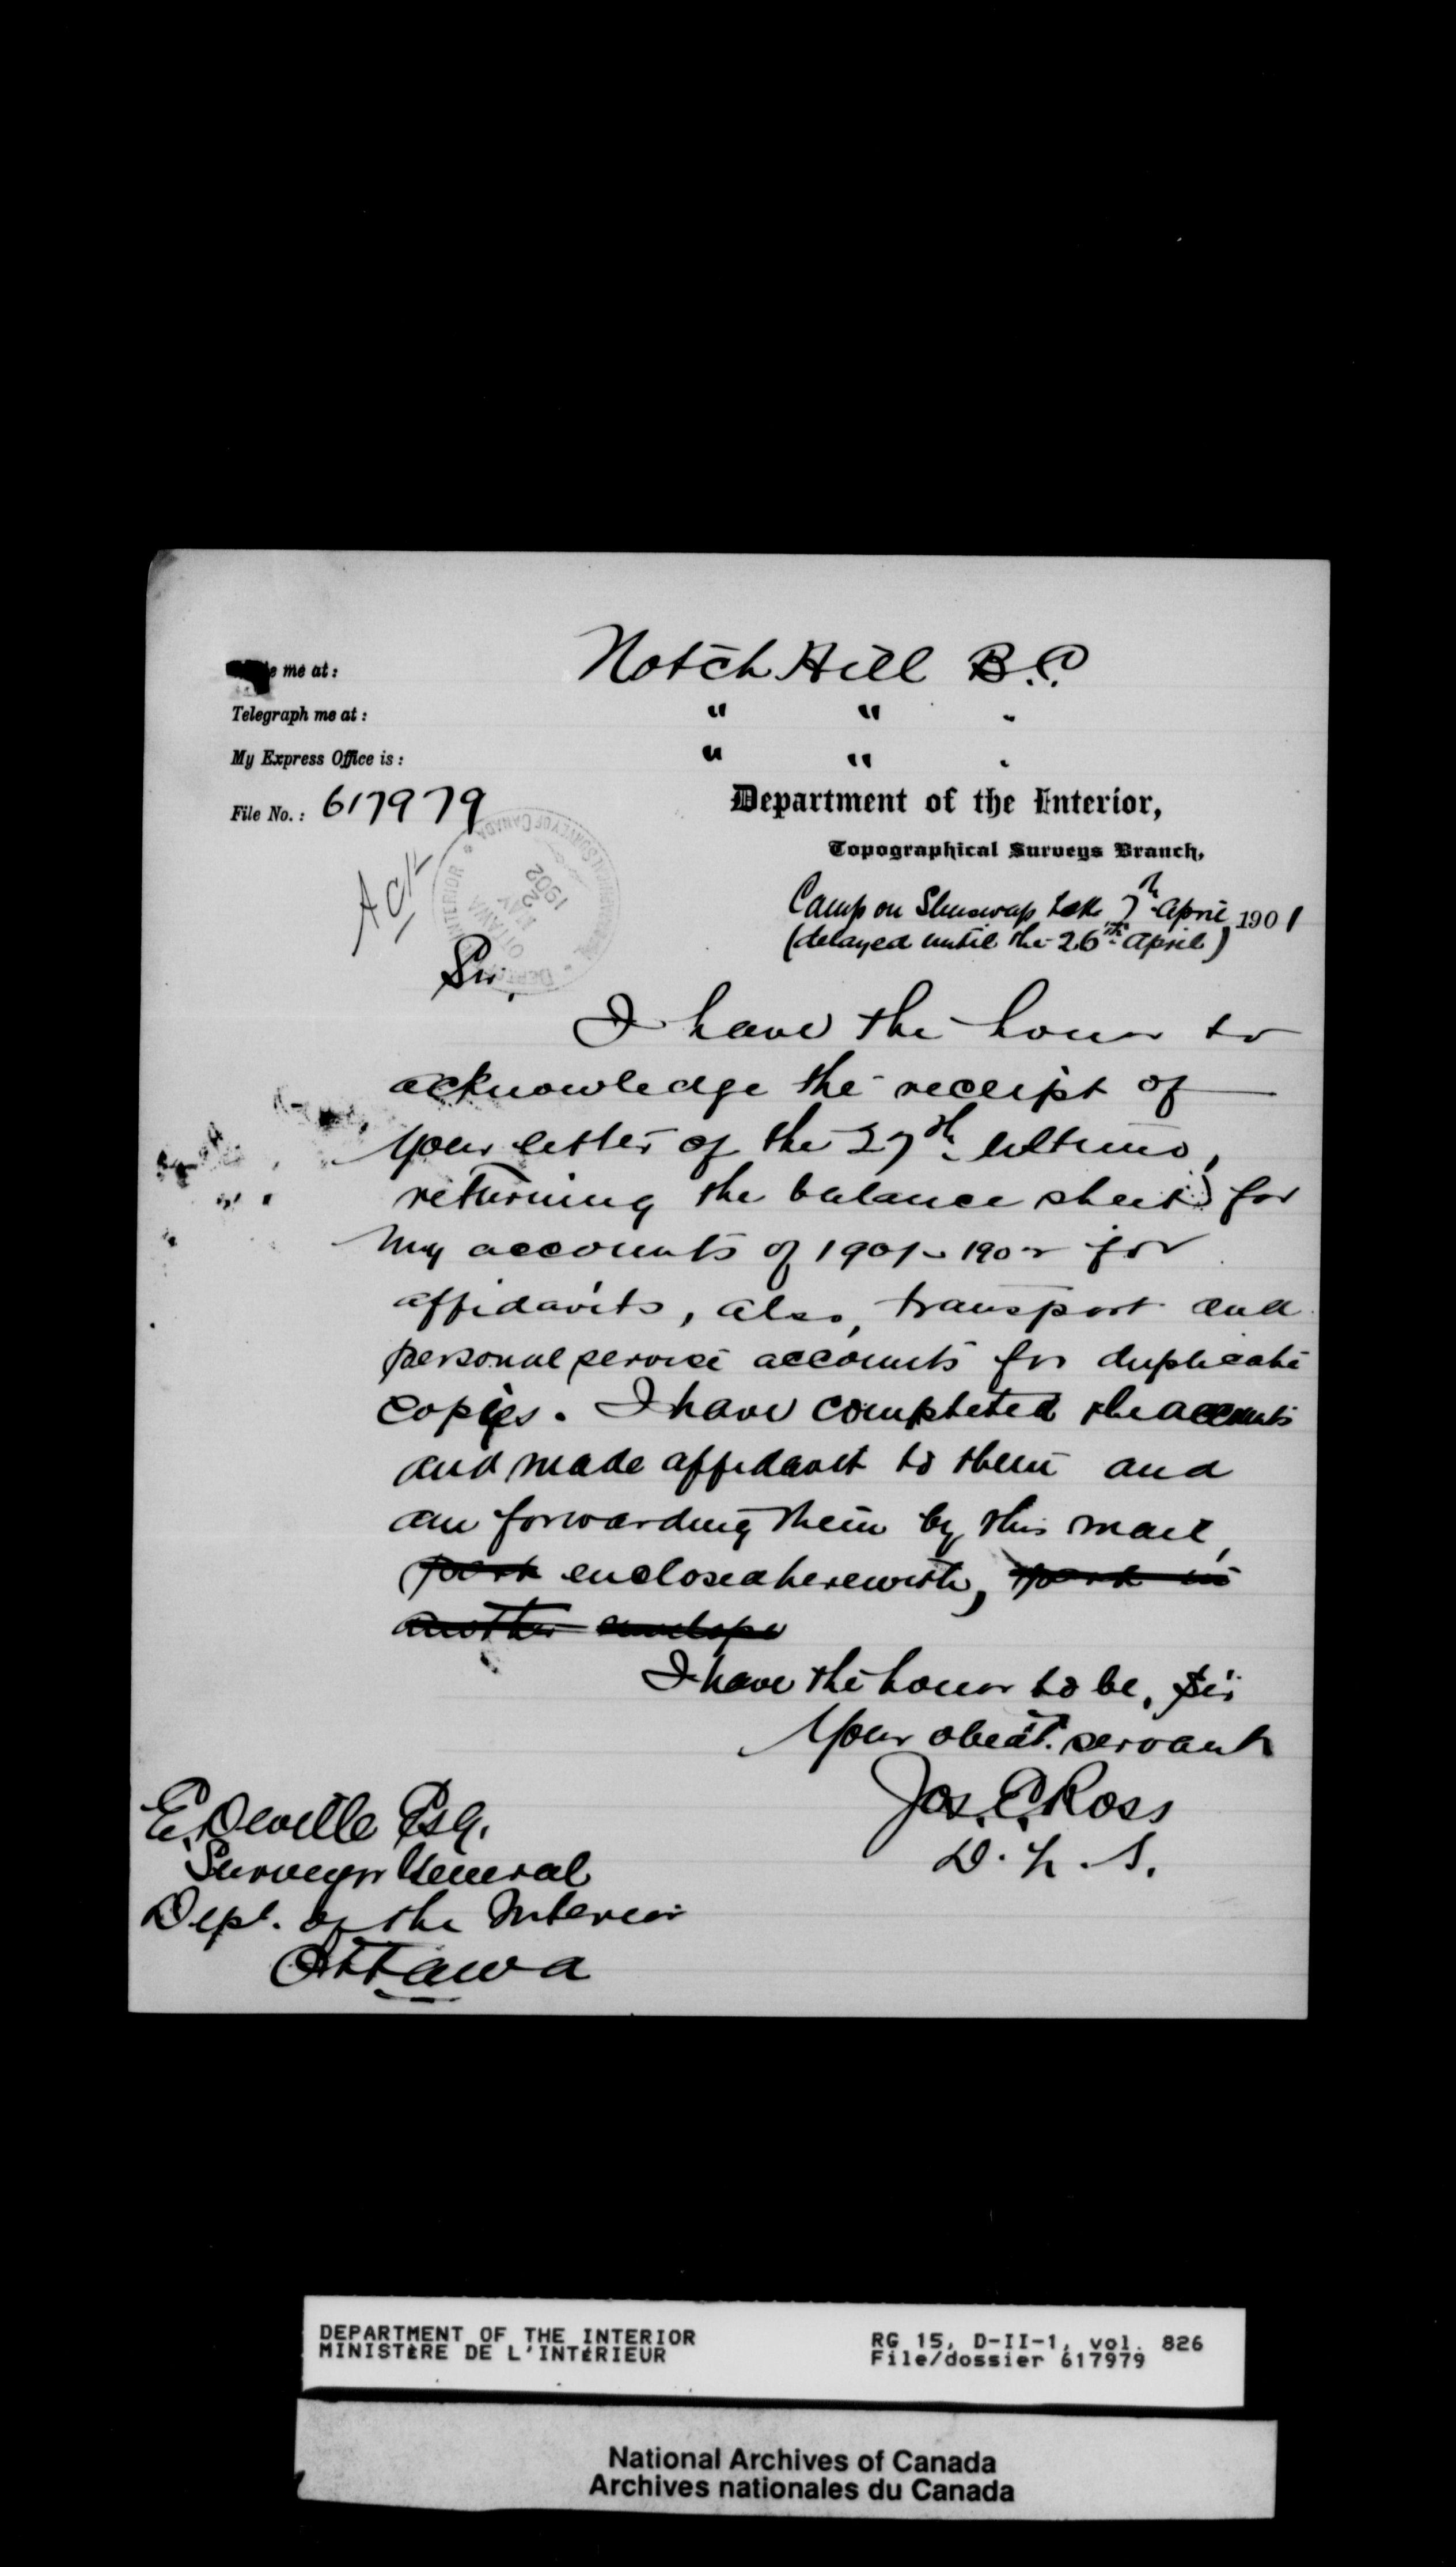 me at: Notch Hill B.C.
Telegraph me at: " " "
My Express Office is: " " "
File No.: 617979
Department of the Interior,
Topographical Surveys Branch,
Ack
DEPT OF INTERIOR
TOPOGRAPHICAL SURVEY OF CANADA
OTTAWA
MAY 2
1902
Camp on Shuswap Lake 7th April 1901
(delayed until the 26th April)
Sir,
I have the honor to
acknowledge the receipt of
your letter of the 27th ultimo,
returning the balance sheets for
my accounts of 1901-1902 for
affidavits, also, transport and
personal service accounts for duplicate
copies. I have completed the accounts
and made affidavit to them and
am forwarding them by this mail,
part enclosed herewith, part in
another envelope
I have the honor to be, Sir
Your obedt. servant
Jos. E. Ross
D. L. S.
E. Deville Esq.
Surveyor General
Dept. of the Interior
Ottawa
DEPARTMENT OF THE INTERIOR
MINISTÈRE DE L'INTÉRIEUR
RG 15, D-II-1, vol. 826
File/dossier 617979
National Archives of Canada
Archives nationales du Canada